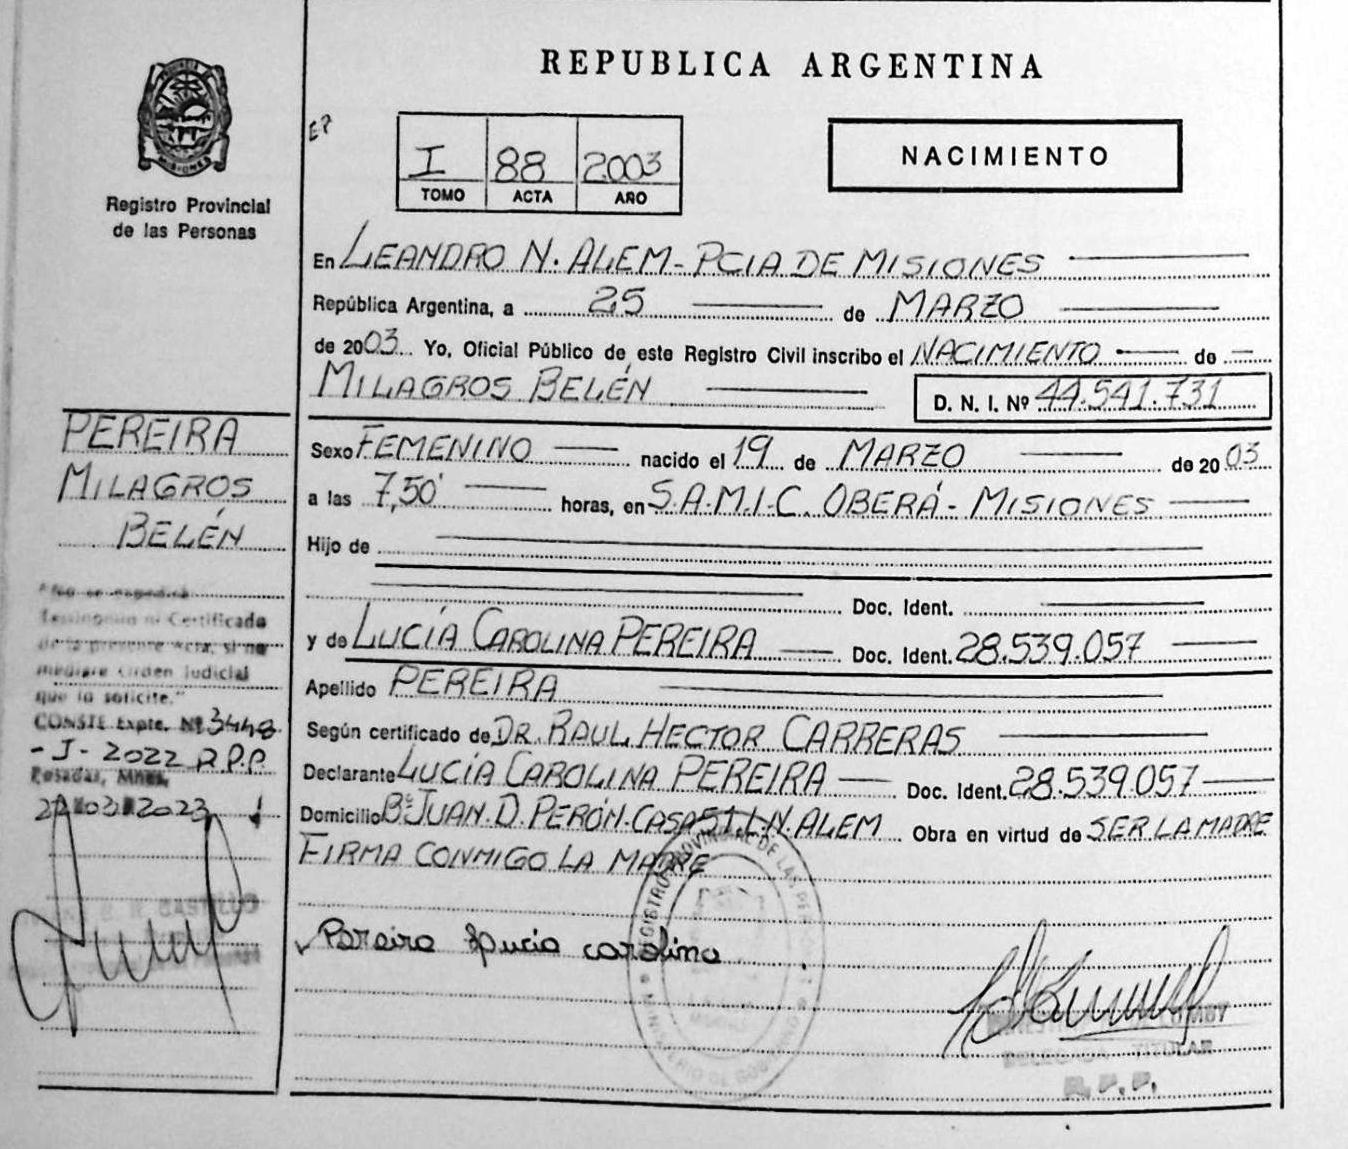 REPUBLICA ARGENTINA
PROVINCIA
MISIONES
Registro Provincial
de las Personas
I 88 2003
TOMO ACTA AÑO
NACIMIENTO
En LEANDRO N. ALEM - PCIA DE MISIONES
República Argentina, a 25 de MARZO
de 2003 Yo, Oficial Público de este Registro Civil inscribo el NACIMIENTO de
MILAGROS BELÉN D. N. I. Nº 44.541.731
Sexo FEMENINO nacido el 19 de MARZO de 2003
a las 7,50' horas, en S.A.M.I.C. OBERÁ - MISIONES
Hijo de
Doc. Ident.
y de LUCÍA CAROLINA PEREIRA Doc. Ident. 28.539.057
Apellido PEREIRA
Según certificado de DR. RAUL HECTOR CARRERAS
Declarante LUCÍA CAROLINA PEREIRA Doc. Ident. 28.539.057
Domicilio Bº JUAN. D. PERÓN. CASA 51. L.N. ALEM Obra en virtud de SER LA MADRE
FIRMA CONMIGO LA MADRE
Pereira Lucia carolina
DELEGADA TITULAR
R. P. P.
PEREIRA
MILAGROS
BELÉN
"No se expedirá
Testimonio ni Certificado
de la presente Acta, si no
mediare Orden Judicial
que lo solicite."
CONSTE Expte. Nº 3448
- J - 2022 R.P.P.
Posadas, Mnes,
CASTILLO
REGISTRO PROVINCIAL DE LAS PERSONAS
MINISTERIO DE GOBIERNO